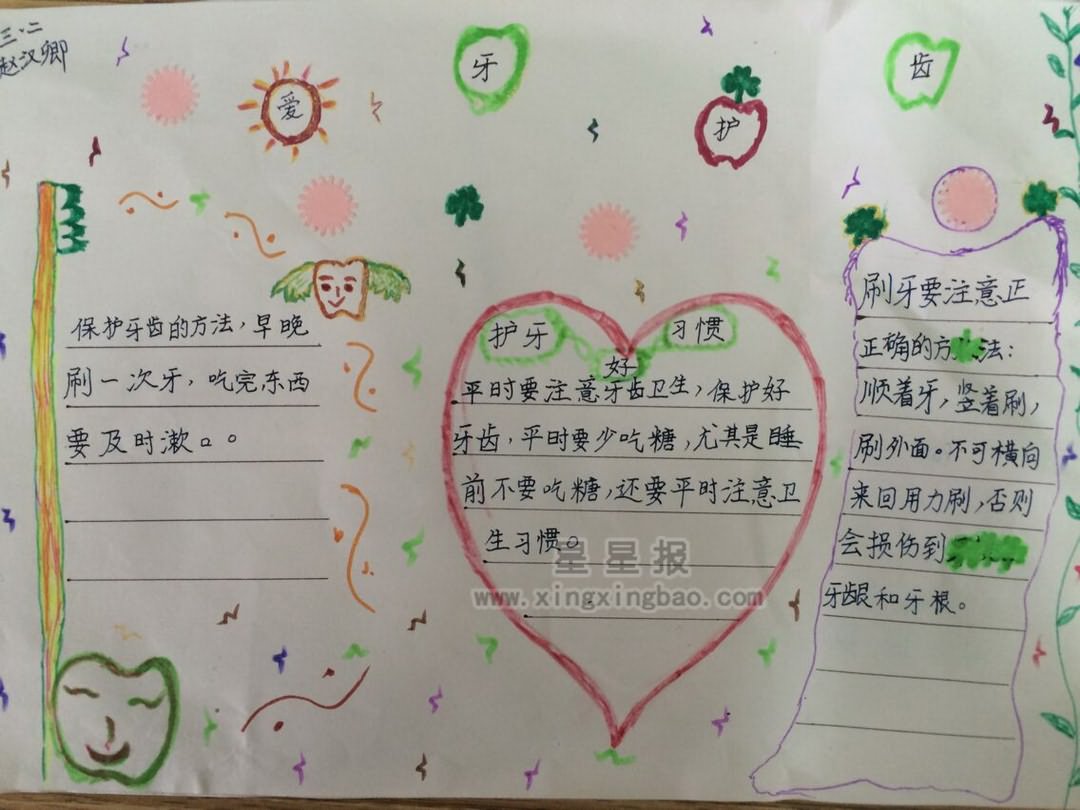 三·二
赵汉卿
爱 牙 护 齿
保护牙齿的方法，早晚
刷一次牙，吃完东西
要及时漱口。
护牙 好 习惯
平时要注意牙齿卫生，保护好
牙齿，平时要少吃糖，尤其是睡
前不要吃糖，还要平时注意卫
生习惯。
刷牙要注意正
正确的方法：
顺着牙，竖着刷，
刷外面。不可横向
来回用力刷，否则
会损伤到
牙龈和牙根。
星星报
www.xingxingbao.com